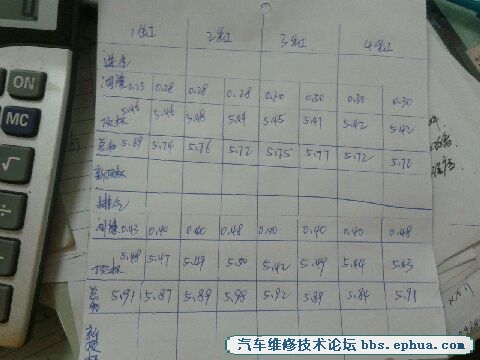 ON
MC
√
÷
1缸 2缸 3缸 4缸
进气
间隙 0.23 0.28 0.28 0.28 0.30 0.30 0.30 0.30
顶杯 5.46 5.46 5.48 5.44 5.45 5.47 5.42 5.42
总和 5.69 5.74 5.76 5.72 5.75 5.77 5.72 5.72
新顶杯
排气
间隙 0.43 0.40 0.40 0.48 0.50 0.40 0.40 0.48
顶杯 5.48 5.47 5.49 5.50 5.42 5.49 5.44 5.43
总和 5.91 5.87 5.89 5.98 5.92 5.89 5.84 5.91
新顶杯
汽车维修技术论坛 bbs.ephua.com